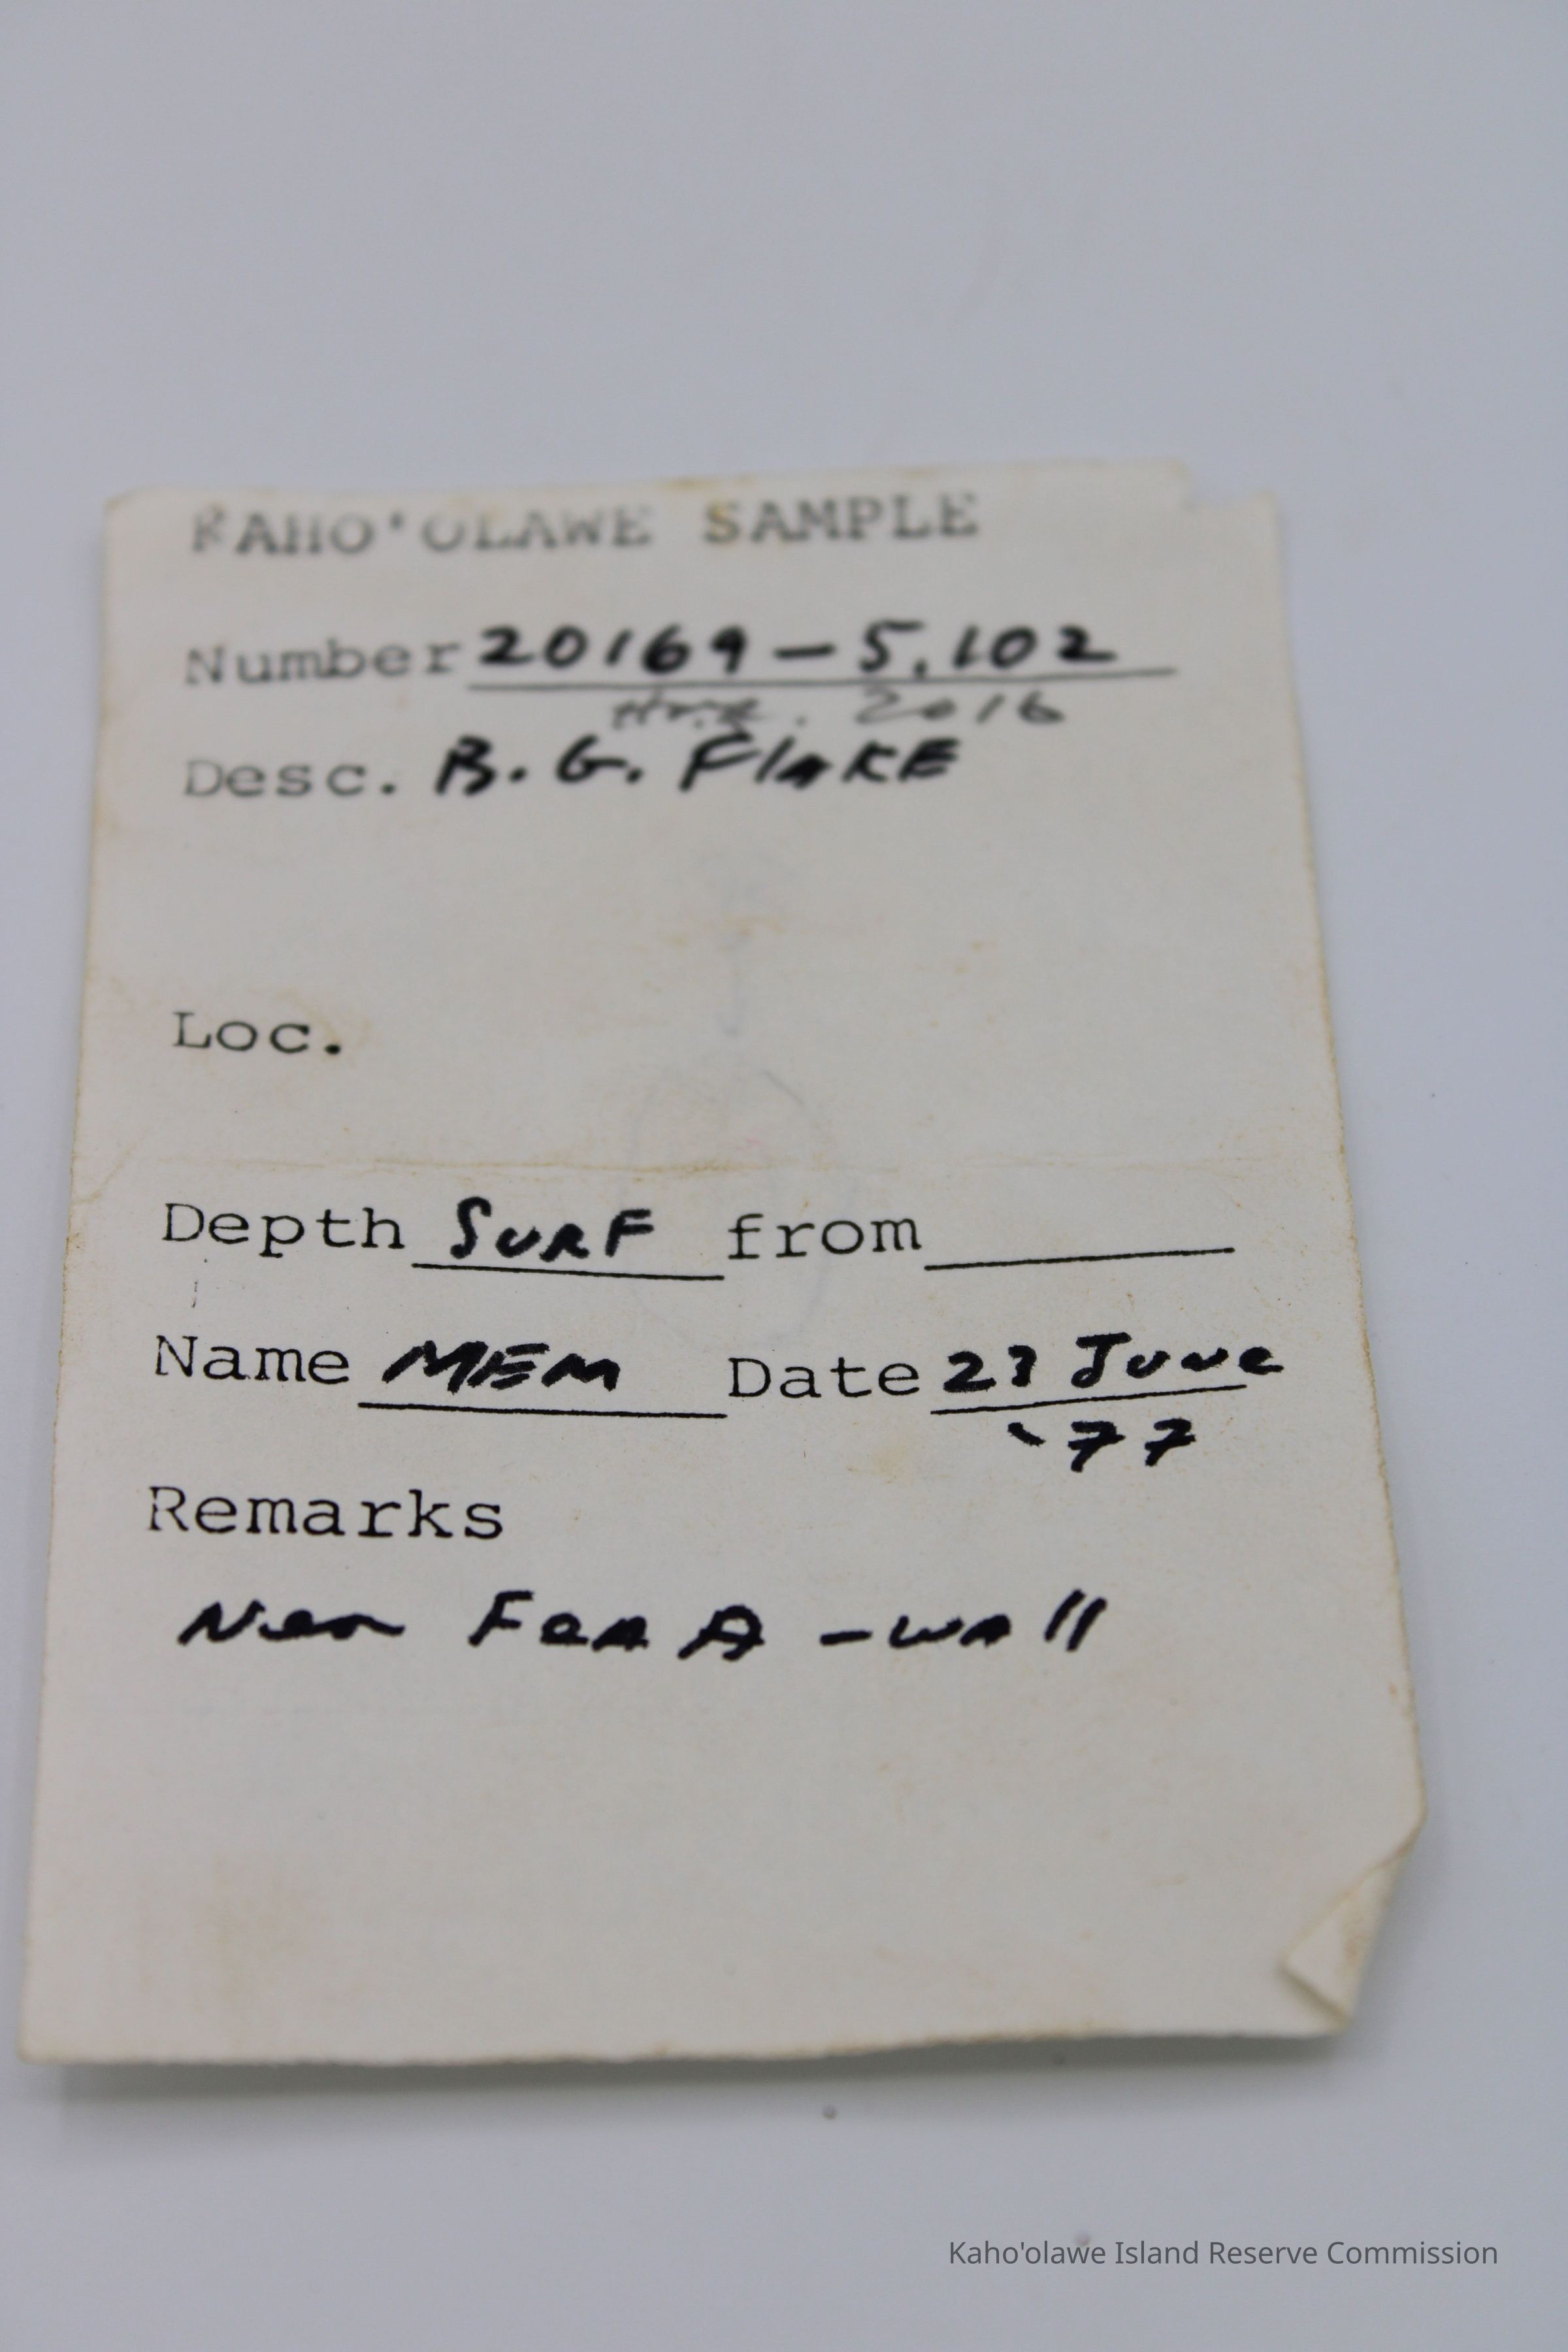 KAHO'OLAWE SAMPLE
Number 20169-5,102
2016
Desc. B.G. FlaKE
Loc.
Depth SURF from
Name MEM Date 23 June
'77
Remarks
Near Fea A -wall
Kaho'olawe Island Reserve Commission